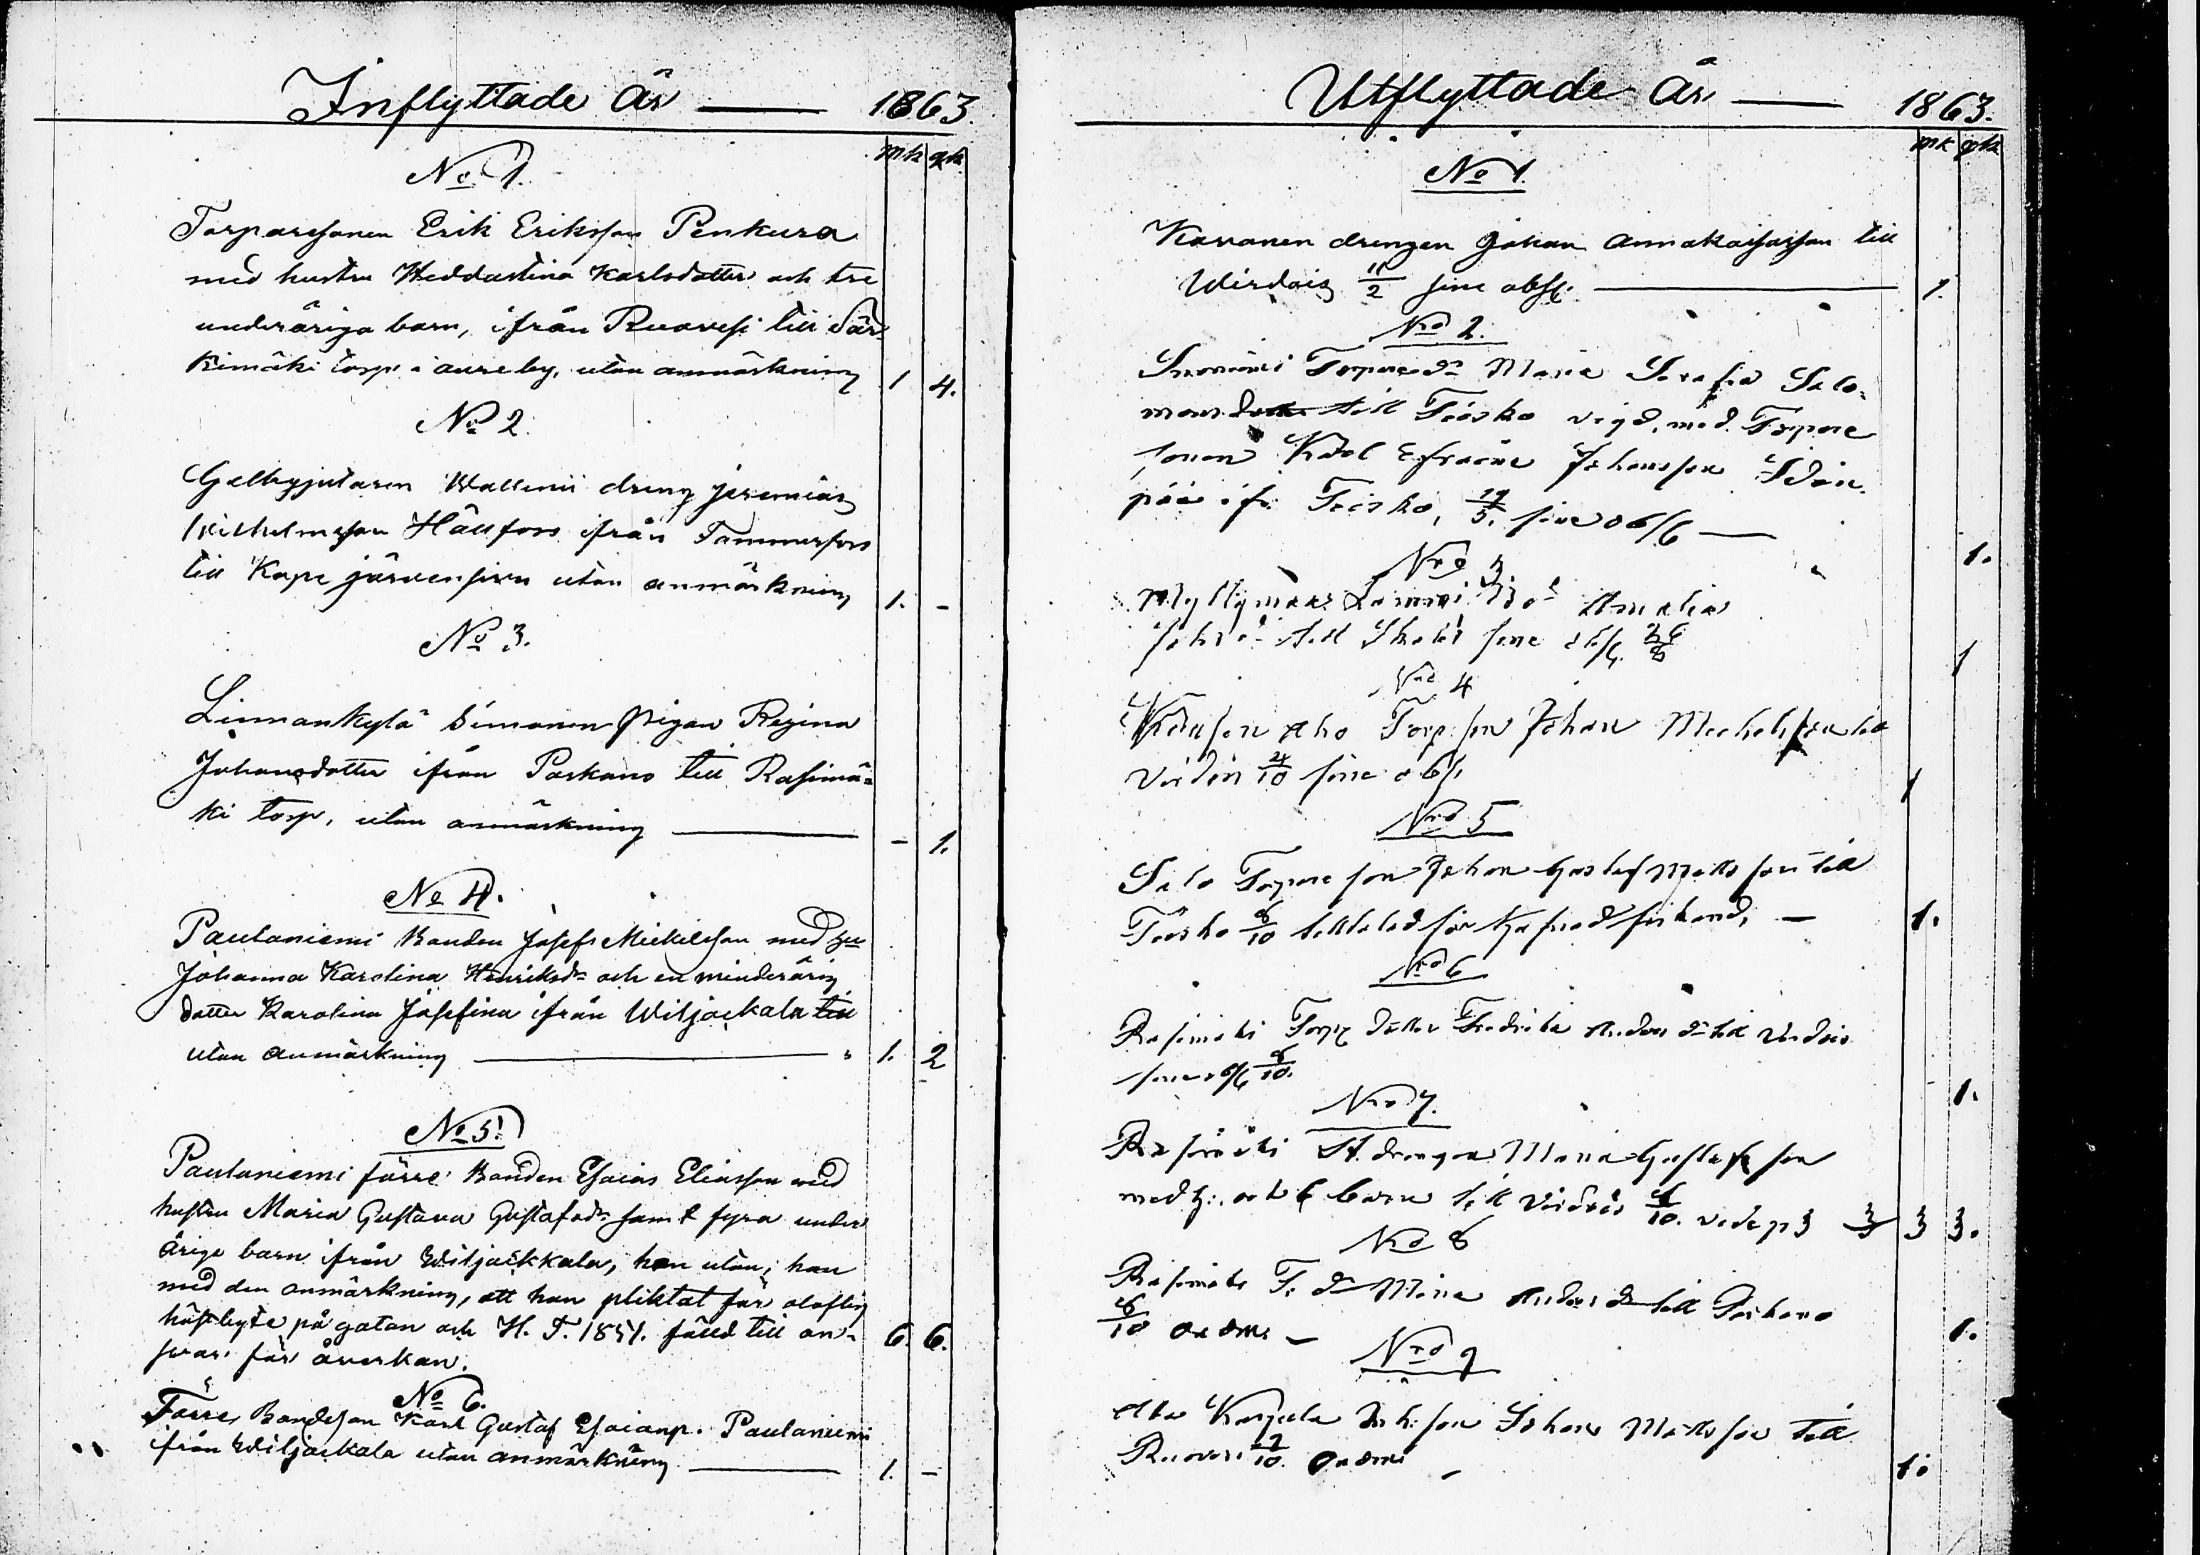 Inflyttade År — 1863.
mk qk
No 1.
Torparesonen Erik Eriksson Penkura
med hustru Heddastina Karlsdotter och tre
underåriga barn, ifrån Ruovesi till Sär-
kimäki torp i aureby, utan anmärkning 1 4.
No 2.
Gelbgjutaren Wallenii dreng Jeremias
Wilhelmsson Hällfors ifrån Tammerfors
till Kapejärvensivu utan anmärkning 1. -
No 3.
Linnankylä Simonen pigan Regina
Johansdotter ifrån Parkano till Rasimä-
ki torp, utan anmärkning — - 1.
No 4.
Paulaniemi Bonden Josef Mickelsson med hu
Johanna Karolina Henriksdr och en minderårig
dotter Karolina Josefina ifrån Wiljackala till
utan anmärkning — 1. 2
No 5.
Paulaniemi förre Bonden Esaias Eliasson med
hustru Maria Gustava Gustafsdr samt fyra under
årige barn ifrån Wiljackkala, hon utan, han
med den anmärkning, att han pliktat för olaflig
hästbyte på gatan och H. T. 1857. fälld till an-
svar för åverkan. 6. 6.
No 6.
Förre Bondeson Karl Gustaf Esaiasp. Paulaniemi
ifrån Wiljackala utan anmärkning — 1. -
Utflyttade År — 1863.
mk qk
No 1.
Kavonen drengen Johan Annakaisasson till
Wirdois 11/2 sine obs. — 1.
Nro 2.
Torparedr Maria Serafia Salo-
monsdotter till Teisko vigd. med Torpare
sonen Karl Efraim Johansson
ifr. Teisko, sine obs — 1.
Nro 3
Amalia
till sine obs. 26/8 1
Nro 4
Aho Torp. son Johan Mickelsson till
Virdois 24/10 sine obs. 1
Nro 5
Salo Torpare son Johan Gustaf Mattsson till
Teisko 6/10 — 1.
Nro 6
Rasimäki Torp dotter Fredrika Anders dr till Virdois
sine obs 6/10. 1.
Nro 7.
Rasimäki drengen Gustafsson
med h. och 6 barn till Virdois 6/10. 3 3 3.
Nro 8
Rasimäki T. dr Maria Anders dr till Parkano
6/10 — 1.
Nro 9
Johan Mattsson till
Ruovesi 1.